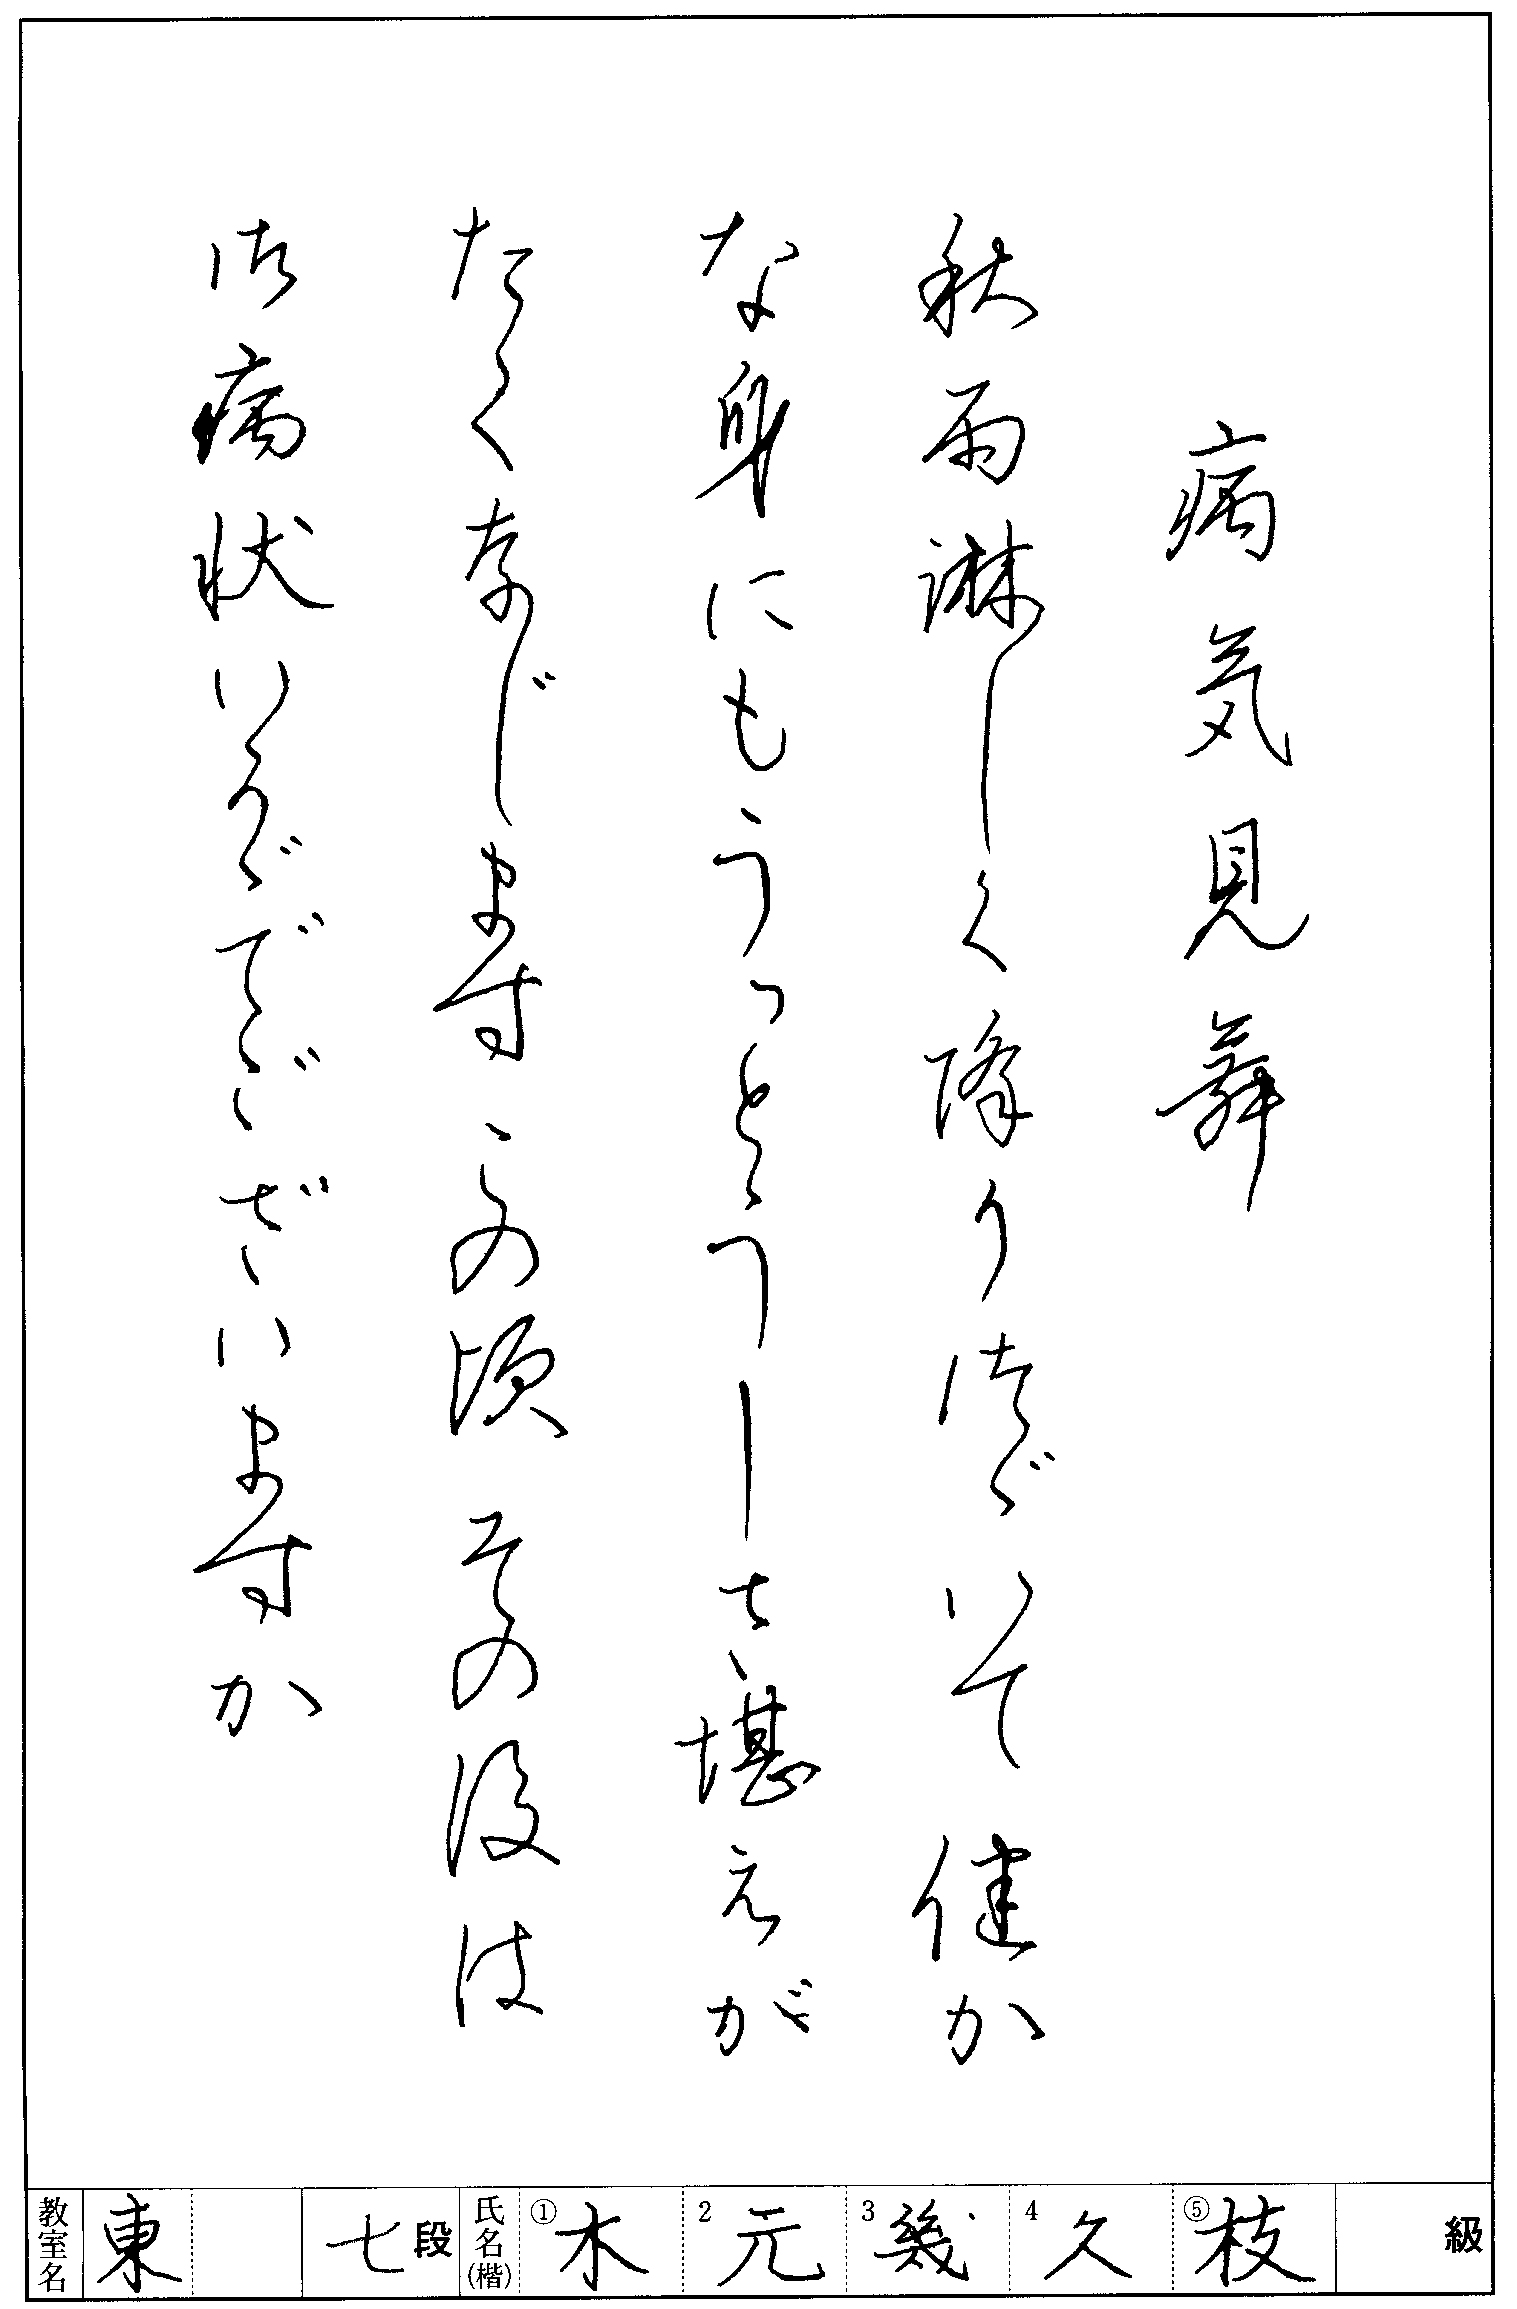 病気見舞
秋雨淋しく降りつづいて健か
な身にもうっとうしさ堪えが
たく存じますこの頃その後は
御病状いかゞでございますか
教室名 東 七段 氏名(楷) ①木 2元 3幾 4久 ⑤枝 級